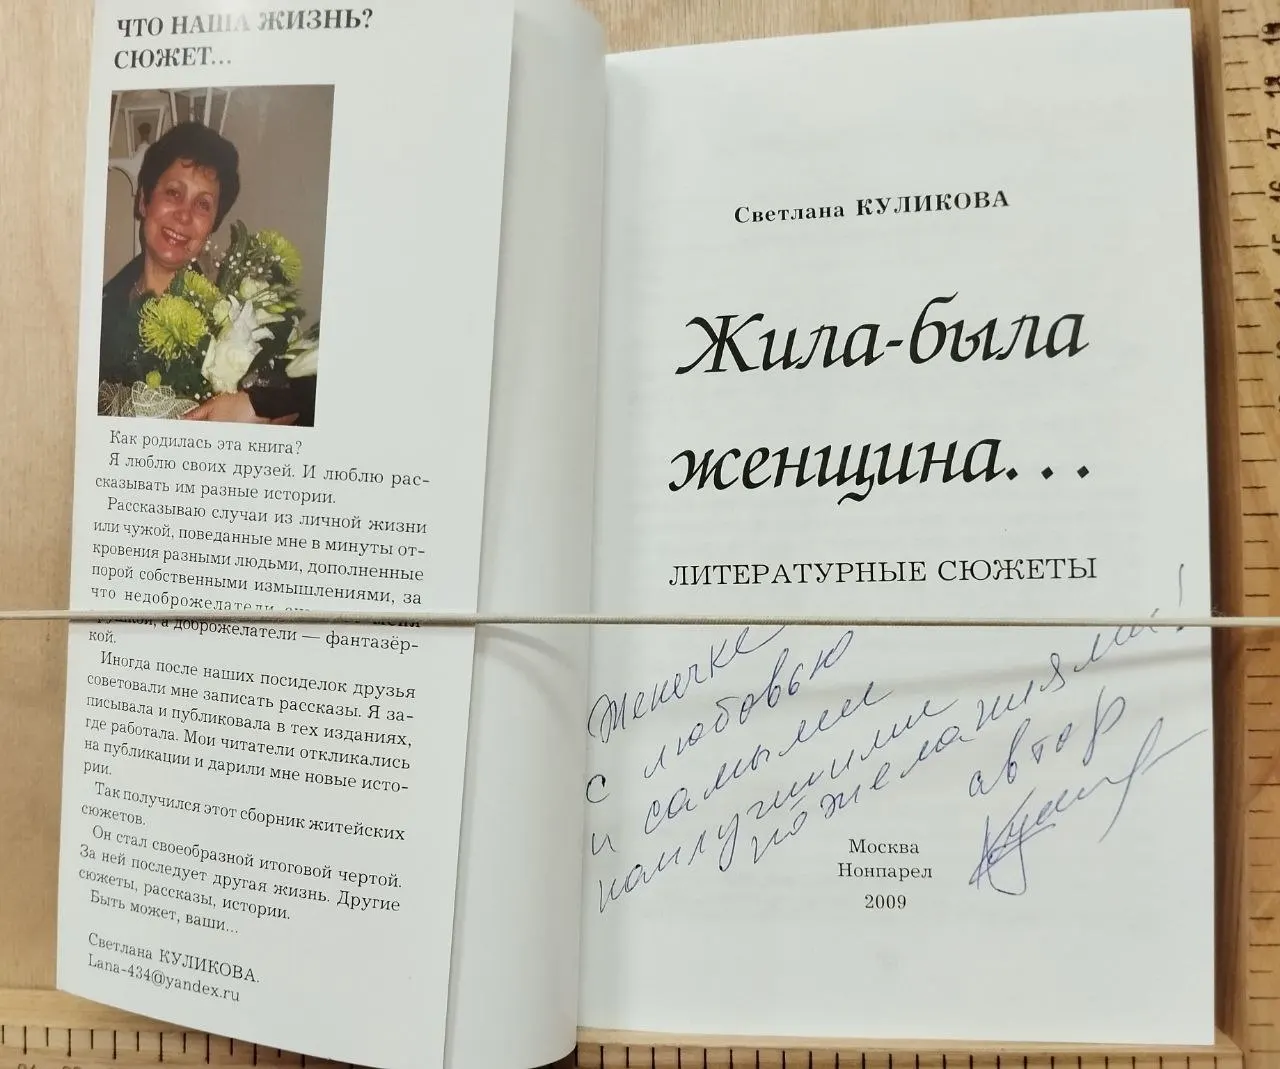 ЧТО НАША ЖИЗНЬ?
СЮЖЕТ...
Как родилась эта книга?
Я люблю своих друзей. И люблю рас-
сказывать им разные истории.
Рассказываю случаи из личной жизни
или чужой, поведанные мне в минуты от-
кровения разными людьми, дополненные
порой собственными измышлениями, за
что недоброжелатели
а доброжелатели — фантазёр-
кой.
Иногда после наших посиделок друзья
советовали мне записать рассказы. Я за-
писывала и публиковала в тех изданиях,
где работала. Мои читатели откликались
на публикации и дарили мне новые исто-
рии.
Так получился этот сборник житейских
сюжетов.
Он стал своеобразной итоговой чертой.
За ней последует другая жизнь. Другие
сюжеты, рассказы, истории.
Быть может, ваши...
Светлана КУЛИКОВА.
Lana-434@yandex.ru
Светлана КУЛИКОВА
Жила-была
женщина...
ЛИТЕРАТУРНЫЕ СЮЖЕТЫ
Женечке
с любовью
и самыми
наилучшими
пожеланиями!
автор
Москва
Нонпарел
2009
19
18
17
16
15